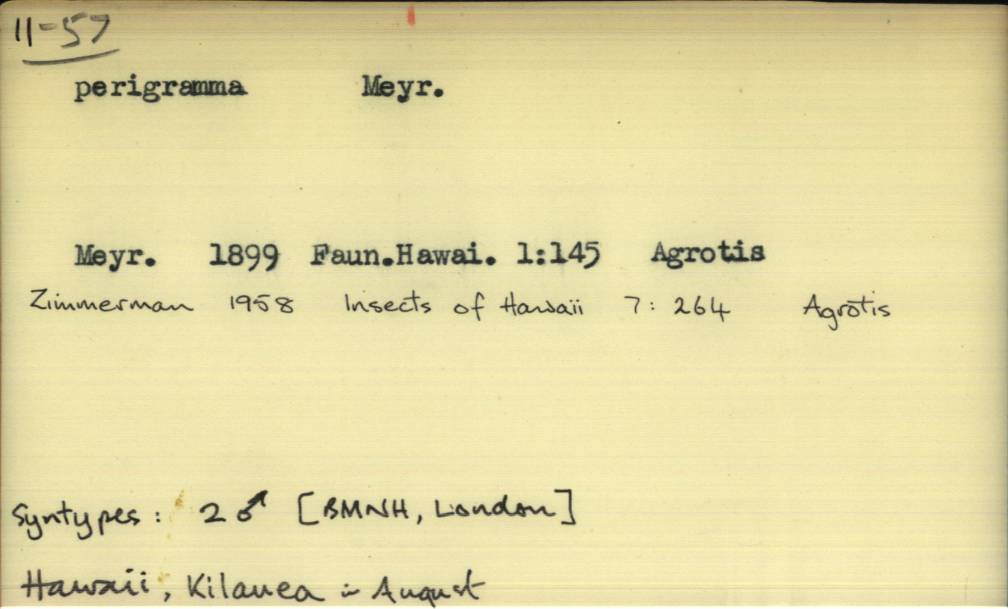 11-57
perigramma Meyr.
Meyr. 1899 Faun.Hawai. 1:145 Agrotis
Zimmerman 1958 Insects of Hawaii 7: 264 Agrotis
Syntypes: 2 ♂ [BMNH, London]
Hawaii, Kilauea in August